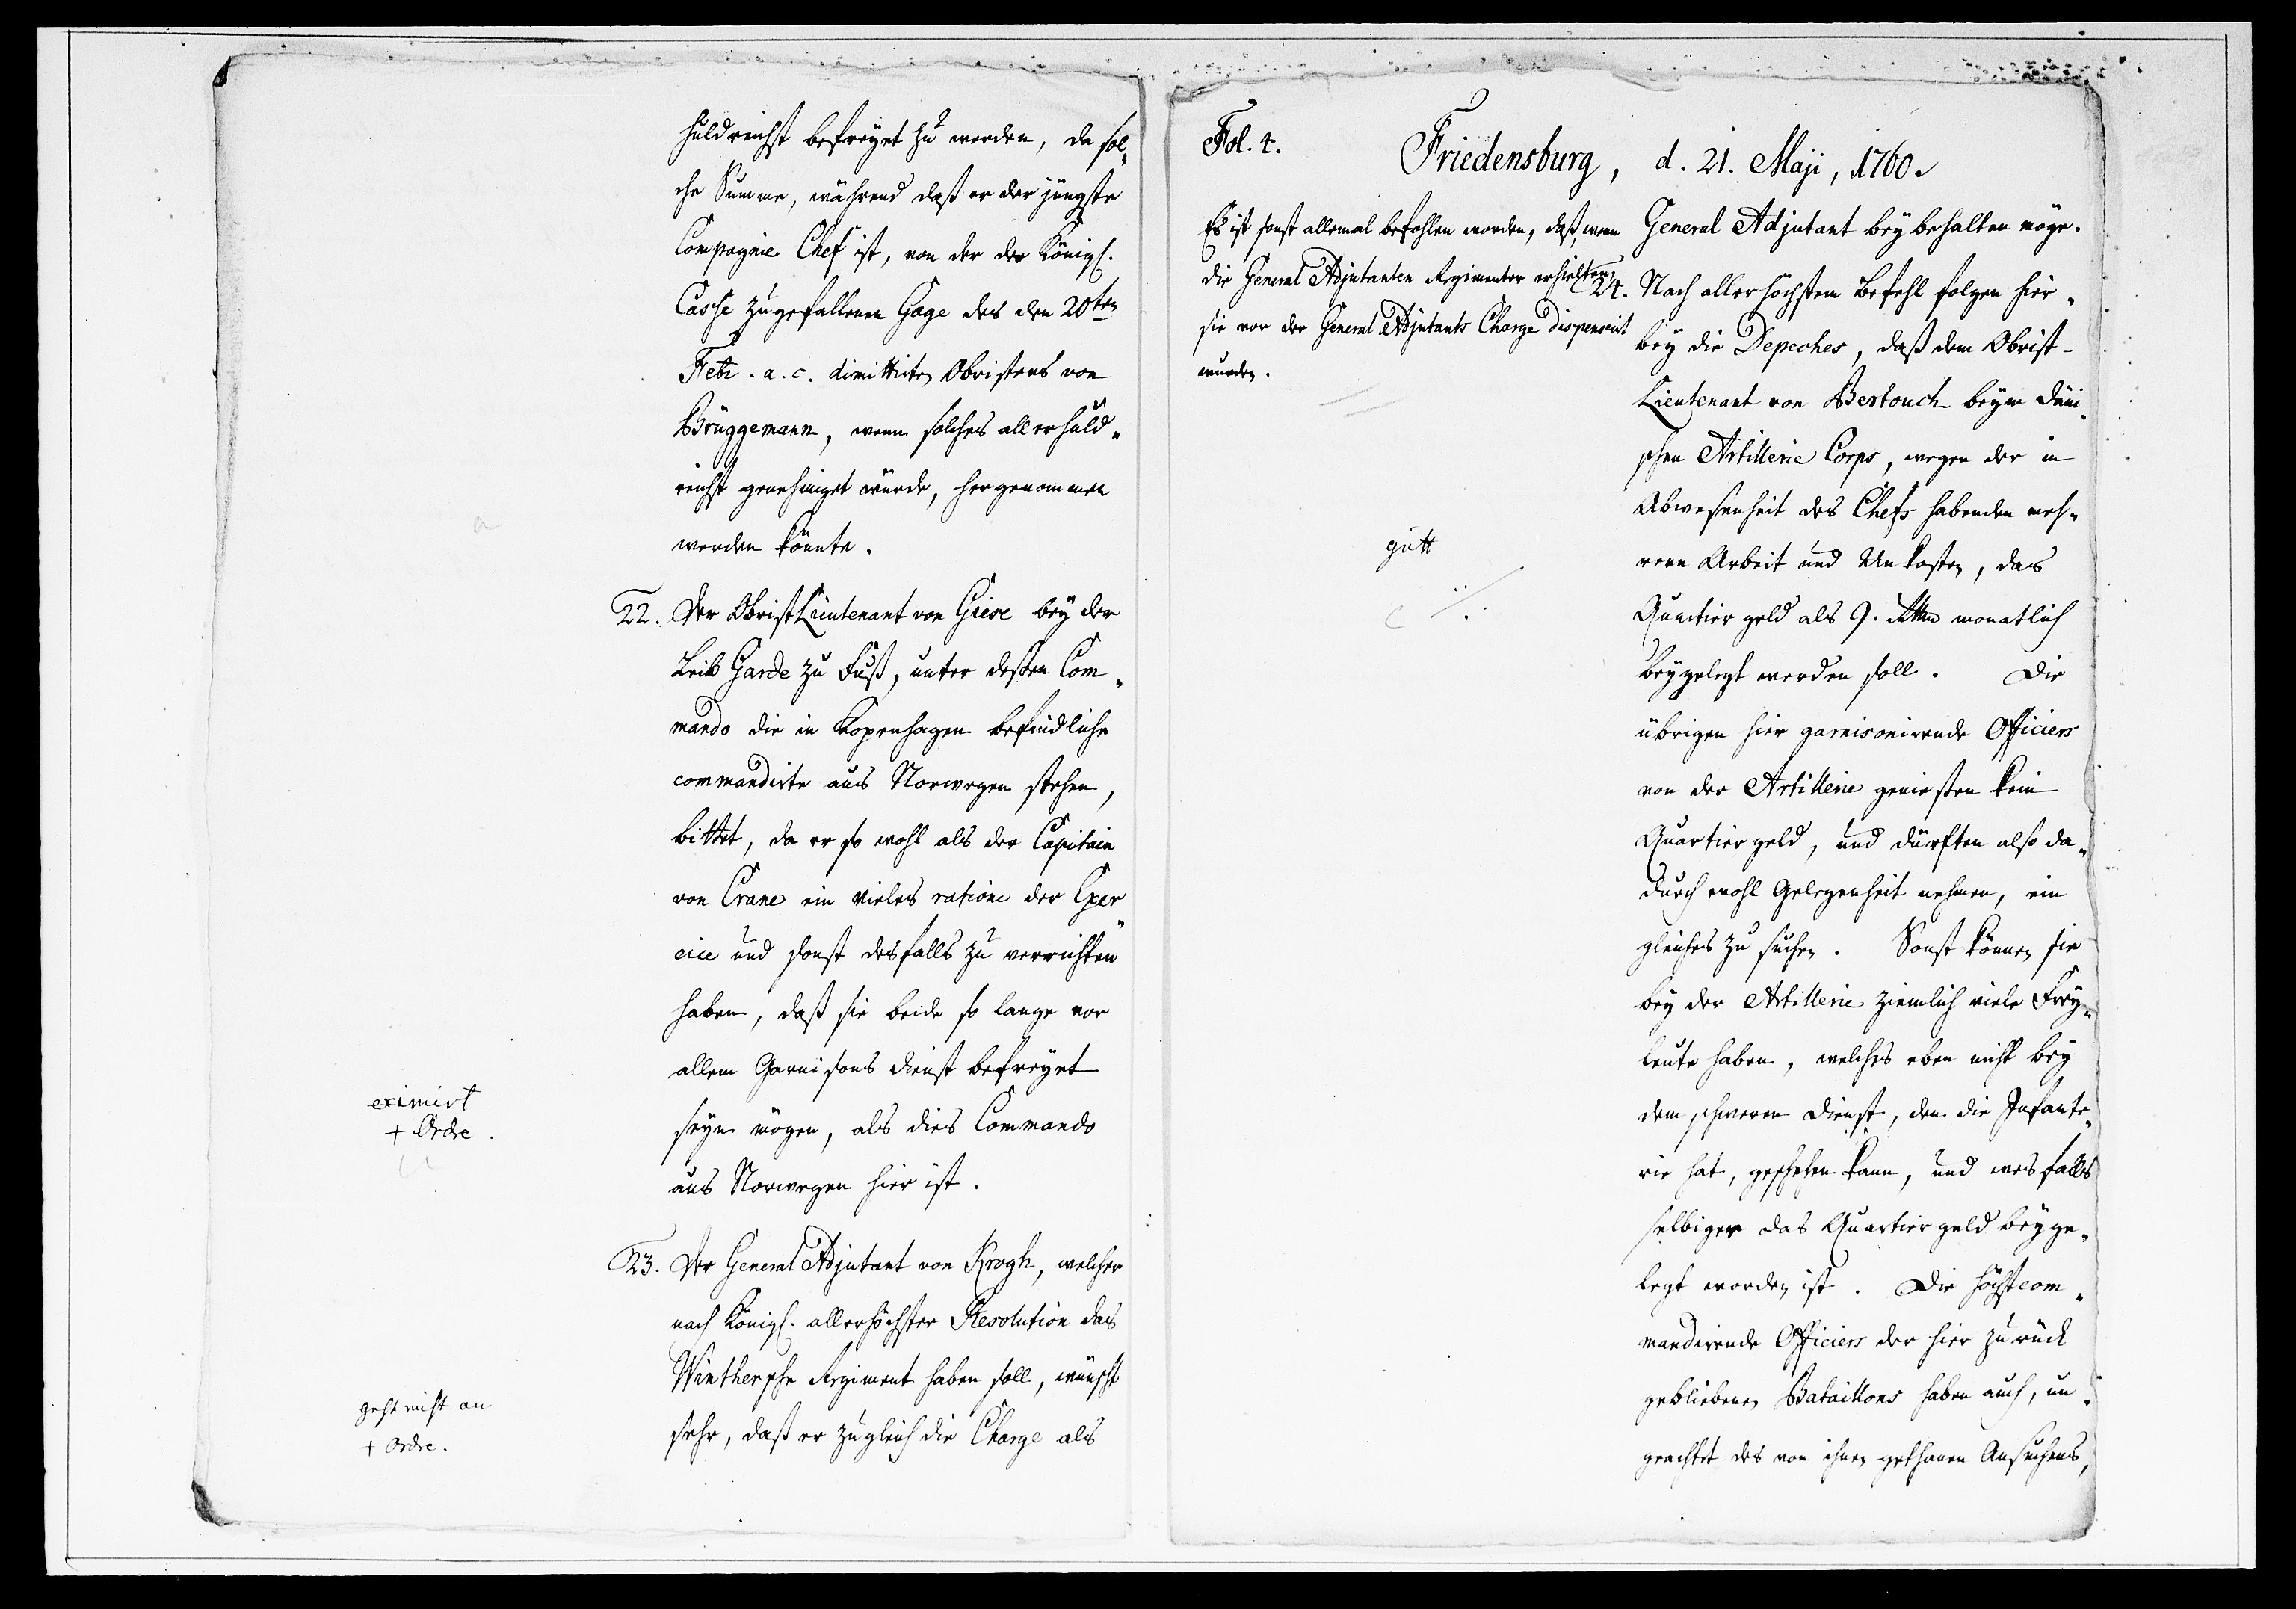 huldreichst befreyet zu werden, da sol„
che Summe, während daß er der jüngste
Compagnie Chef ist, von der der Königl.
Casse zugefallenen Gage des den 20ten
Febr. a. c. dimittirten Obristens von
Brüggemann, wenn solches allerhuld„
reichst genehmiget würde, hergenommen
werden könnte.
22. Der ObristLieutenant von Giese bey der
Leib Garde zu Fuß, unter dessen Com„
mando die in Kopenhagen befindliche
commandirte aus Norwegen stehen,
bittet, da er so wohl als der Capitain
von Crane ein vieles ratione der Exer„
cice und sonst desfalls zu verrichten
haben, daß sie beide so lange vor
allem Garnisons Dienst befreyet
eximirt
+ Ordre.
seyn mögen, als dies Commando
aus Norwegen hier ist.
23. Der General Adjutant von Krogh, welcher
nach Königl. allerhöchster Resolution das
Winthersche Regiment haben soll, wünscht
geht nicht an
+ Ordre.
sehr, daß er zugleich die Charge als
Fol. 4.
Friedensburg, d. 21. Maji, 1760.
Es ist sonst allemal befohlen worden, daß, wenn
die General Adjutanten Regimenter erhielten,
sie von der General Adjutants Charge dispensirt
wurden.
General Adjutant beybehalten möge.
24. Nach allerhöchstem Befehl folgen hier„
bey die Depeches, daß dem Obrist-
Lieutenant von Bertouch beym Däni„
schen Artillerie Corps, wegen der in
Abwesenheit des Chefs habenden meh„
gutt
rern Arbeit und Unkosten, das
Quartiergeld als 9. monatlich
beygelegt werden soll. Die
übrigen hier garnisonirende Officiers
von der Artillerie geniessen kein
Quartiergeld, und dürften also da„
durch wohl Gelegenheit nehmen, ein
gleiches zu suchen. Sonst können sie
bey der Artillerie ziemlich viele Frey„
leute haben, welches eben nicht bey
dem schweren Dienst, den die Infante„
rie hat, geschehen kann, und wesfalls
selbiger das Quartiergeld beyge„
legt worden ist. Die höchstcom„
mandirende Officiers der hier zurück
gebliebenen Bataillons haben auch, un„
geachtet des von ihnen gethanen Ansuchens,